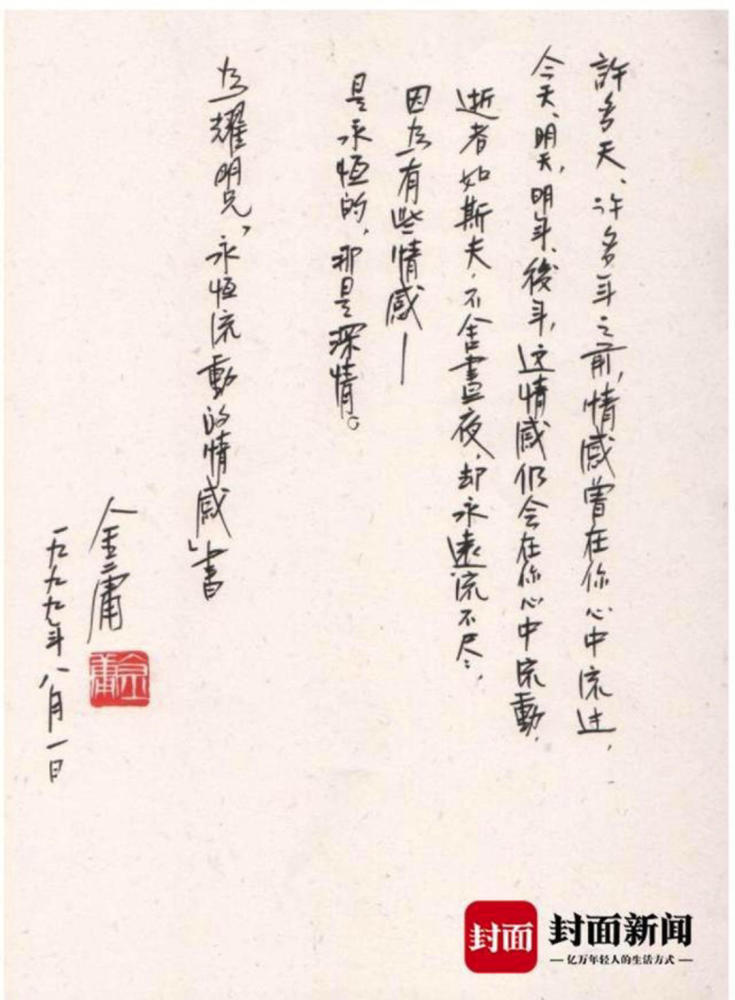 許多天、許多年之前，情感曾在你心中流过，
今天、明天，明年、後年，这情感仍会在你心中流動，
逝者如斯夫，不舍晝夜，却永遠流不尽，
因为有些情感—
是永恒的，那是深情。
为耀明兄「永恒流動的情感」書
金庸
金庸
一九九九年八月一日
封面
封面新闻
亿万年轻人的生活方式